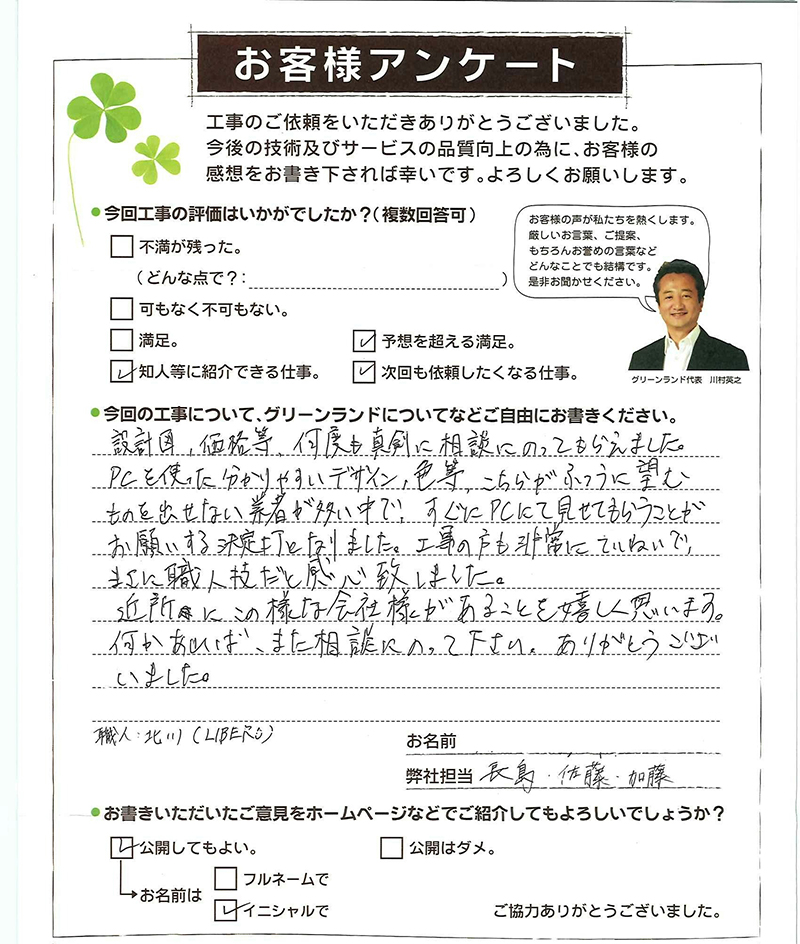 お客様アンケート
工事のご依頼をいただきありがとうございました。
今後の技術及びサービスの品質向上の為に、お客様の
感想をお書き下されば幸いです。よろしくお願いします。
今回工事の評価はいかがでしたか?(複数回答可)
不満が残った。
(どんな点で?: )
可もなく不可もない。
満足。
予想を超える満足。
知人等に紹介できる仕事。
次回も依頼したくなる仕事。
お客様の声が私たちを熱くします。
厳しいお言葉、ご提案、
もちろんお誉めの言葉など
どんなことでも結構です。
是非お聞かせください。
グリーンランド代表 川村英之
今回の工事について、グリーンランドについてなどご自由にお書きください。
設計図、価格等、何度も真剣に相談にのってもらえました。
PCを使った分かりやすいデザイン、色等、こちらがふつうに望む
ものを出せない業者が多い中で、すぐにPCにて見せてもらうことが
お願いする決定打となりました。工事の方も非常にていねいで、
まさに職人技だと感心致しました。
近所にこの様な会社様があることを嬉しく思います。
何かあれば、また相談にのって下さい。ありがとうござ
いました。
職人:北川(LIBERO)
お名前
弊社担当 長島・佐藤・加藤
お書きいただいたご意見をホームページなどでご紹介してもよろしいでしょうか?
公開してもよい。
公開はダメ。
お名前は
フルネームで
イニシャルで
ご協力ありがとうございました。